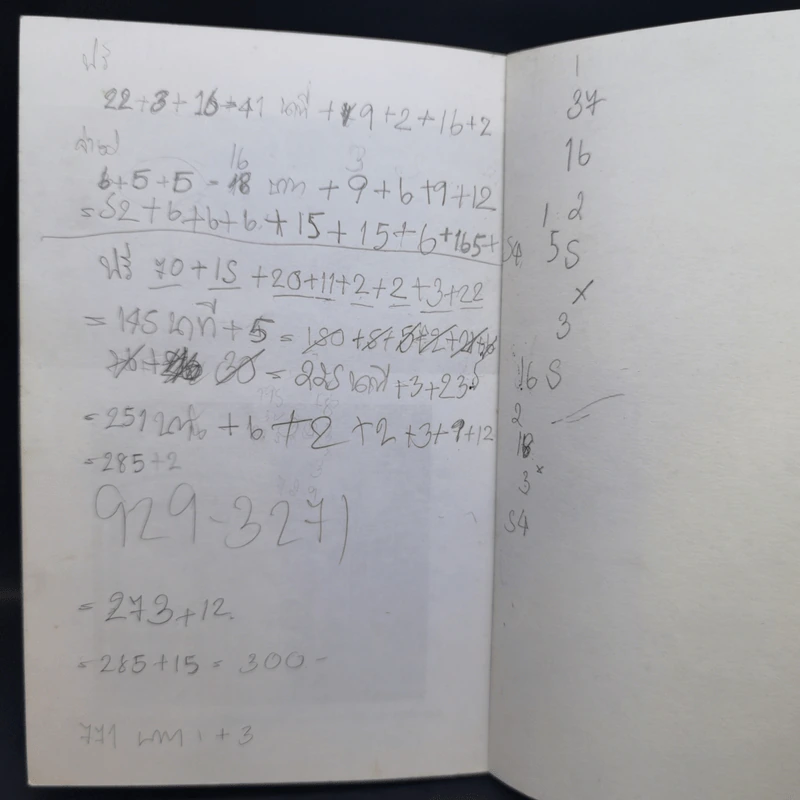 ฟรี
22+3+16=41 นาที +9+2+16+2
16 3
6+5+5 = 18 บาท +9+6+9+12
=52+6+6+6+15+15+6+165+54
ฟรี 70+15+20+11+2+2+3+22
=145 นาที+5 = 180+8+5+22+21+16
30 = 225 นาที +3+23
=251 นาที +6+2+2+3+9+12
=285+2
929-3271
=273+12
=285+15=300-
771 บาท +3
1
37
16
1 2
5 5
x
3
16 5
2
18
3 x
54